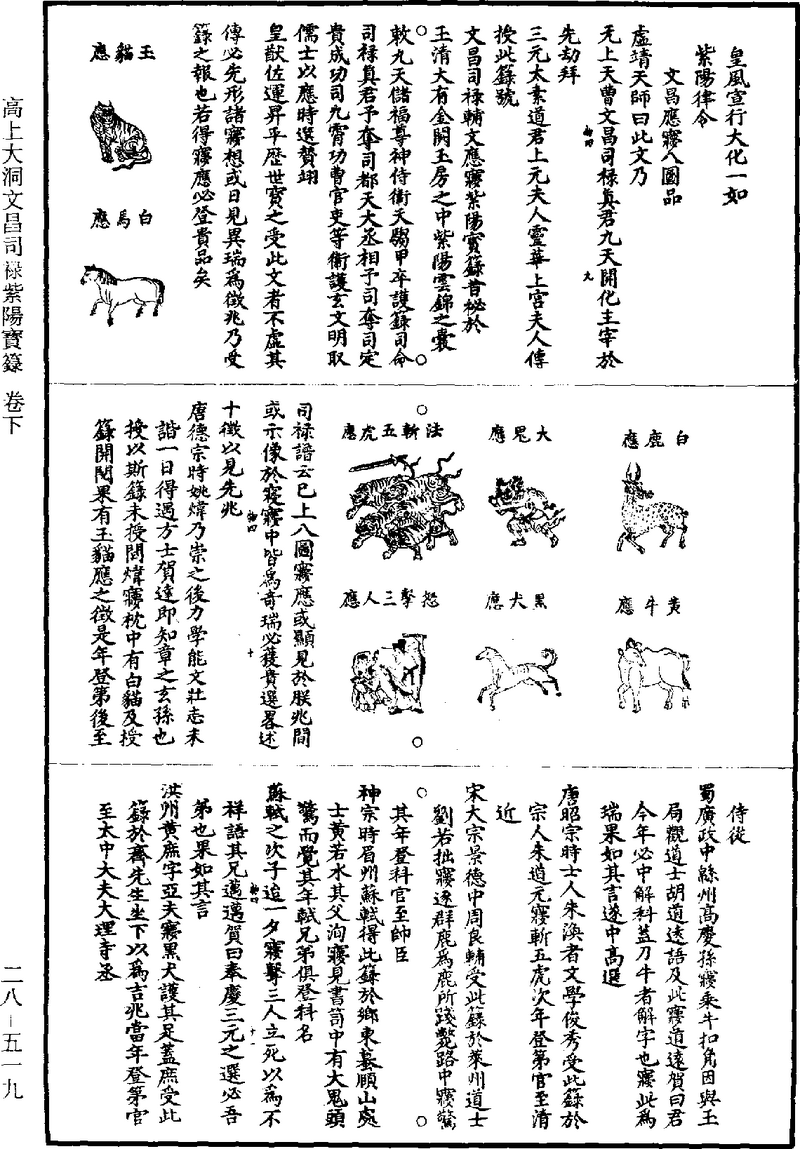 皇風宣行大化一如
紫陽律令
文昌應寢八圖品
虛靖天師曰此文乃
无上天曹文昌司祿真君九天開化主宰於
先劫拜
三元太素道君上元夫人靈華上宮夫人傳
授此籙號
文昌司祿輔文應寢紫陽寶籙昔秘於
玉清大有金闕玉房之中紫陽雲錦之囊
敕九天儲福尊神侍衛天騶甲卒護籙司命
司祿真君予奪司都天大丞相予司奪司定
貴成功司九霄功曹官吏等衛護玄文明取
儒士以應時選贊翊
皇猷佐運昇平歷世寶之受此文者不虛其
傳必先形諸寢想或日見異瑞為徵兆乃受
籙之報也若得寢應必登貴品矣
玉貓應
白馬應
白鹿應
黃牛應
大鬼應
黑犬應
法斬五虎應
怒擊三人應
司祿譜云已上八圖寢應或顯見於朕兆間
或示像於寢寢中皆為奇瑞必獲貴選畧述
十徵以見先兆
唐德宗時姚煒乃崇之後力學能文壯志未
諧一日得遇方士賀達即知章之玄孫也
授以斯籙未授間煒寢枕中有白貓及授
籙開閱果有玉貓應之徵是年登第後至
侍從
蜀廣政中綿州高慶孫寢乘牛扣角因與玉
局觀道士胡道遠語及此寢道遠賀曰君
今年必中解科蓋刀牛者解字也寢此為
瑞果如其言遂中高選
唐昭宗時士人朱渙者文學俊秀受此籙於
宗人朱道元寢斬五虎次年登第官至清
近
宋大宗景德中周良輔受此籙於萊州道士
劉若拙寢逐群鹿為鹿所踐斃路中寢驚
其年登科官至帥臣
神宗時眉州蘇軾得此籙於鄉東嶽願山處
士黃若水其父洵寢見書笥中有大鬼頭
驚而覺其年軾兄弟俱登科名
蘇軾之次子迨一夕寢擊三人立死以為不
祥語其兄邁邁賀曰奉慶三元之選必吾
第也果如其言
洪州黃庶字亞夫寢黑犬護其足蓋庶受此
籙於齊先生坐下以為吉兆當年登第官
至太中大夫大理寺丞
高上大洞文昌司祿紫陽寶籙 卷下
二八－五一九